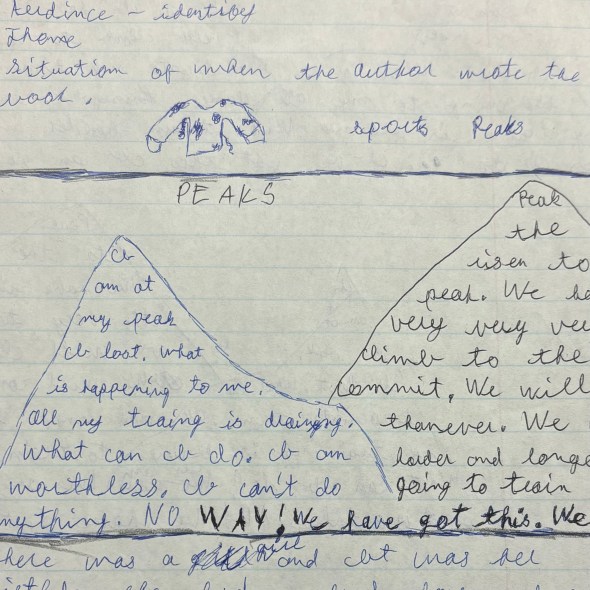 Audince - identify
Theme
situation of when the author wrote the
book.
sports Peaks
PEAKS
I
am at
my peak
I lost. What
is happening to me.
All my traing is draining.
What can I do. I am
worthless. I can't do
nything. NO WAY! We have got this. We
Peak
the
isen to
peak. We ha
very very ver
climb to the
commit, We will
thanever. We
larder and longe
going to train
here was a and It was her